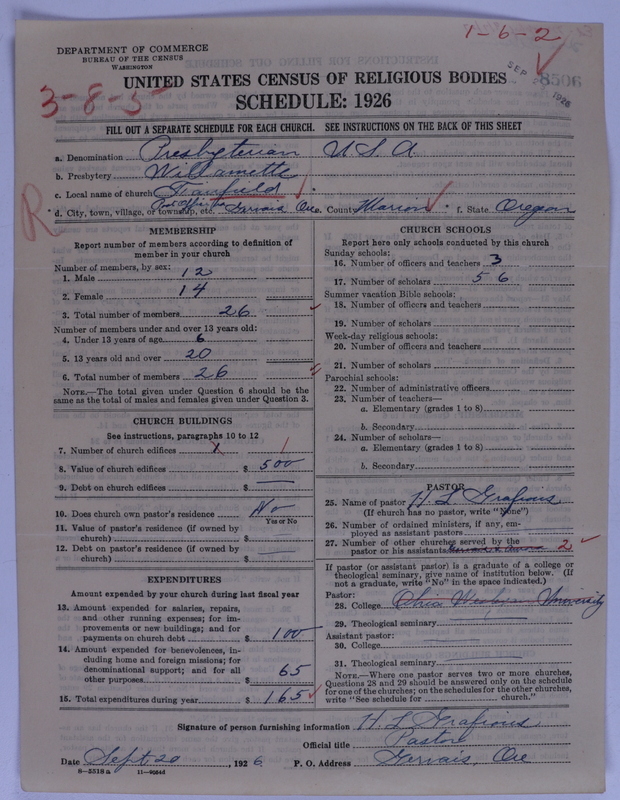 1-6-2
DEPARTMENT OF COMMERCE
BUREAU OF THE CENSUS
WASHINGTON
SEP 1926
8506
UNITED STATES CENSUS OF RELIGIOUS BODIES
3-8-5
SCHEDULE: 1926
FILL OUT A SEPARATE SCHEDULE FOR EACH CHURCH. SEE INSTRUCTIONS ON THE BACK OF THIS SHEET
a. Denomination Presbyterian U S A
b. Presbytery Willamette
c. Local name of church Fairfield
R
Post Office
* d. City, town, village, or township, etc. Gervais Ore. County Marion * f. State Oregon
MEMBERSHIP
Report number of members according to definition of member in your church
Number of members, by sex:
1. Male 12
2. Female 14
3. Total number of members 26
Number of members under and over 13 years old:
4. Under 13 years of age 6
5. 13 years old and over 20
6. Total number of members 26
NOTE.—The total given under Question 6 should be the
same as the total of males and females given under Question 3.
CHURCH BUILDINGS
See instructions, paragraphs 10 to 12
7. Number of church edifices 1
8. Value of church edifices $ 500
9. Debt on church edifices $ —
10. Does church own pastor's residence No
Yes or No
11. Value of pastor's residence (if owned by
church) $ —
12. Debt on pastor's residence (if owned by
church) $ —
EXPENDITURES
Amount expended by your church during last fiscal year
13. Amount expended for salaries, repairs,
and other running expenses; for im-
provements or new buildings; and for
payments on church debt $ 100
14. Amount expended for benevolences, in-
cluding home and foreign missions; for
denominational support; and for all
other purposes $ 65
15. Total expenditures during year $ 165
CHURCH SCHOOLS
Report here only schools conducted by this church
Sunday schools:
16. Number of officers and teachers 3
17. Number of scholars 56
Summer vacation Bible schools:
18. Number of officers and teachers
19. Number of scholars
Week-day religious schools:
20. Number of officers and teachers
21. Number of scholars
Parochial schools:
22. Number of administrative officers
23. Number of teachers—
a. Elementary (grades 1 to 8)
b. Secondary
24. Number of scholars—
a. Elementary (grades 1 to 8)
b. Secondary
PASTOR
25. Name of pastor H. L. Grafious
(If church has no pastor, write "None")
26. Number of ordained ministers, if any, em-
ployed as assistant pastors
27. Number of other churches served by the
pastor or his assistants 2
If pastor (or assistant pastor) is a graduate of a college or
theological seminary, give name of institution below. (If
not a graduate, write "No" in the space indicated.)
Pastor:
28. College Ohio Wesleyan University
29. Theological seminary
Assistant pastor:
30. College
31. Theological seminary
NOTE.—Where one pastor serves two or more churches,
Questions 28 and 29 should be answered only on the schedule
for one of the churches; on the schedules for the other churches,
write "See schedule for church."
Signature of person furnishing information H L Grafious
Official title Pastor
Date Sept 20, 1926 P. O. Address Gervais, Ore
8-5518 a 11-9054d